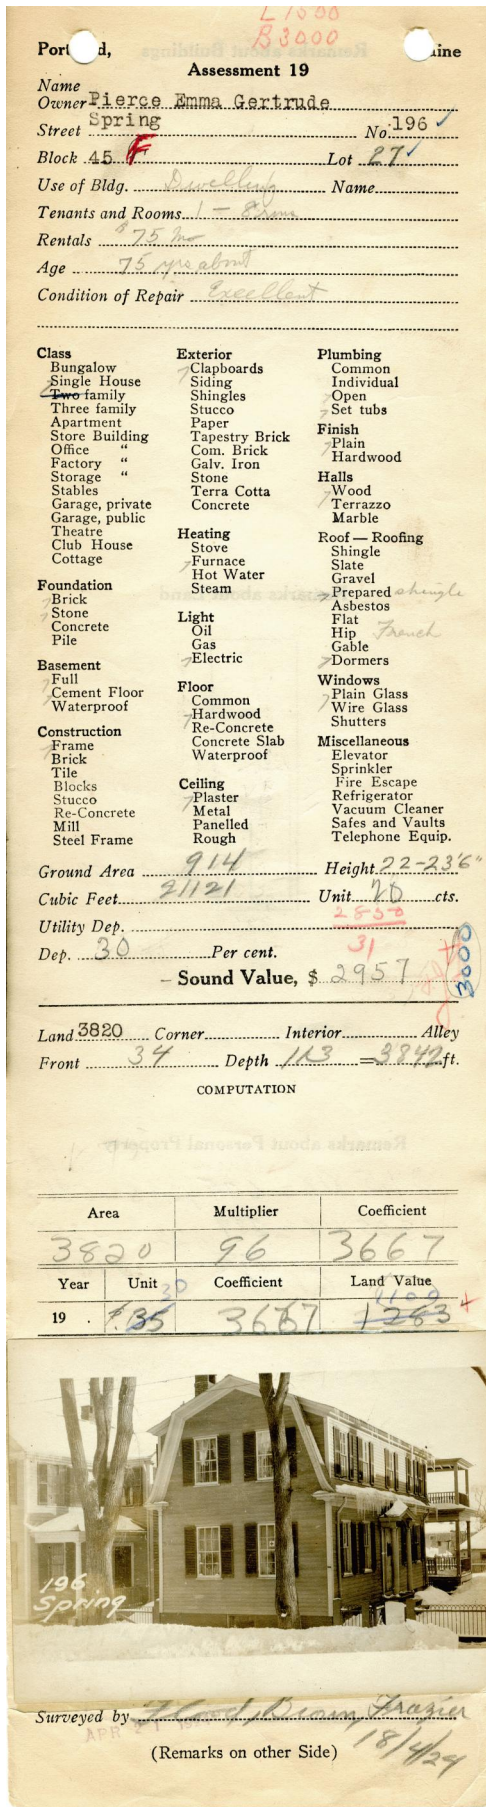 L 1500
B 3000
Port d, aine
Assessment 19
Name
Owner Pierce Emma Gertrude
Street Spring No. 196 ✓
Block 45 F Lot 27 ✓
Use of Bldg. Dwelling Name
Tenants and Rooms 1 - 8 rms
Rentals $75 mo
Age 75 yrs about
Condition of Repair Excellent
Class
Bungalow
Single House
Two family
Three family
Apartment
Store Building
Office "
Factory "
Storage "
Stables
Garage, private
Garage, public
Theatre
Club House
Cottage
Foundation
Brick
Stone
Concrete
Pile
Basement
Full
Cement Floor
Waterproof
Construction
Frame
Brick
Tile
Blocks
Stucco
Re-Concrete
Mill
Steel Frame
Exterior
Clapboards
Siding
Shingles
Stucco
Paper
Tapestry Brick
Com. Brick
Galv. Iron
Stone
Terra Cotta
Concrete
Heating
Stove
Furnace
Hot Water
Steam
Light
Oil
Gas
Electric
Floor
Common
Hardwood
Re-Concrete
Concrete Slab
Waterproof
Ceiling
Plaster
Metal
Panelled
Rough
Plumbing
Common
Individual
Open
Set tubs
Finish
Plain
Hardwood
Halls
Wood
Terrazzo
Marble
Roof — Roofing
Shingle
Slate
Gravel
Prepared shingle
Asbestos
Flat
Hip French
Gable
Dormers
Windows
Plain Glass
Wire Glass
Shutters
Miscellaneous
Elevator
Sprinkler
Fire Escape
Refrigerator
Vacuum Cleaner
Safes and Vaults
Telephone Equip.
Ground Area 914 Height 22-23'6"
Cubic Feet 21121 Unit 20 cts.
Utility Dep. 2850
Dep. 30 Per cent. 31
Sound Value, $ 2957 3000
Land 3820 Corner Interior Alley
Front 34 Depth 113 = 3842 ft.
COMPUTATION
Area Multiplier Coefficient
3820 96 3667
Year Unit Coefficient Land Value
30 1100
19 . $.35 3667 1283 +
196
Spring
Surveyed by Flood, Brown, Frazier
APR
18/4/24
(Remarks on other Side)